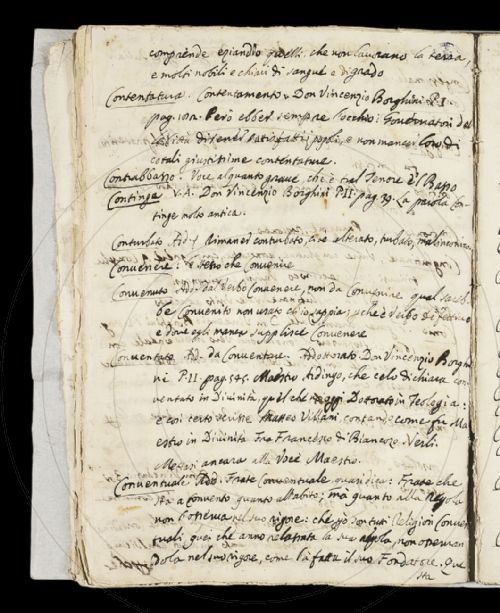 comprende eziandio quelli che non lavorano la terra,
e molti nobili e chiari di sangue e di grado
Contentatura. Contentamento. Don Vincenzio Borghini P.I.
pag. Però ebber sempre l'occhio i Governatori del
Città di tener satisfatti i popoli, e non mancar loro di
cotali giustissime contentature.
Contrabbasso. Voce alquanto grave, che è tral Tenore e'l Basso
Continge V.A. Don Vincenzio Borghini P.II. pag. 39. La parola Con-
tinge molto antica.
Conturbato. Ad. Rimaner conturbato, cioè alterato, turbato, malinconico
Convenere: stesso che Convenire
Convenuto Ad. dal Verbo Convenere, non da Convenire, qual
be Convenito non usato ch'io sappia; Verbo difettivo
e dove egli manca supplisce Convenere
Conventato. Ad. da Conventare. Addottorato. Don Vincenzio Borghi
ni P.II. pag. 545. Maestro Aldingo, che celo dichiara con-
ventato in Divinità, quel che oggi Dottorato in Teologia:
e così certo scrisse Matteo Villani, contando come fu Ma
estro in Divinità Fra Francesco di Biancozzo Nerli.
Messi ancora alla Voce Maestro.
Conventuale. Add. Frate Conventuale quasi dica: Frate che
sta a convento quanto all'abito; ma quanto alla regola
non l'osserva nel suo rigore: che son tutti Religiosi Conven
tuali, quei che anno la sua regola, non osservan
dola nel suo rigore, come l'a fatta il suo Fondatore. Que
sta